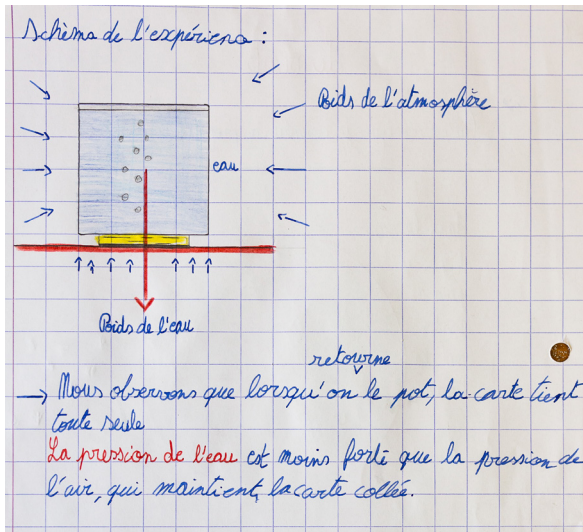 Schèma de l'expérienc :
Poids de l'atmosphère
eau
Poids de l'eau
retourne
→ Nous observons que lorsqu'on le pot, la carte tient
toute seule
La pression de l'eau est moins forte que la pression de
l'air, qui maintient, la carte collée.